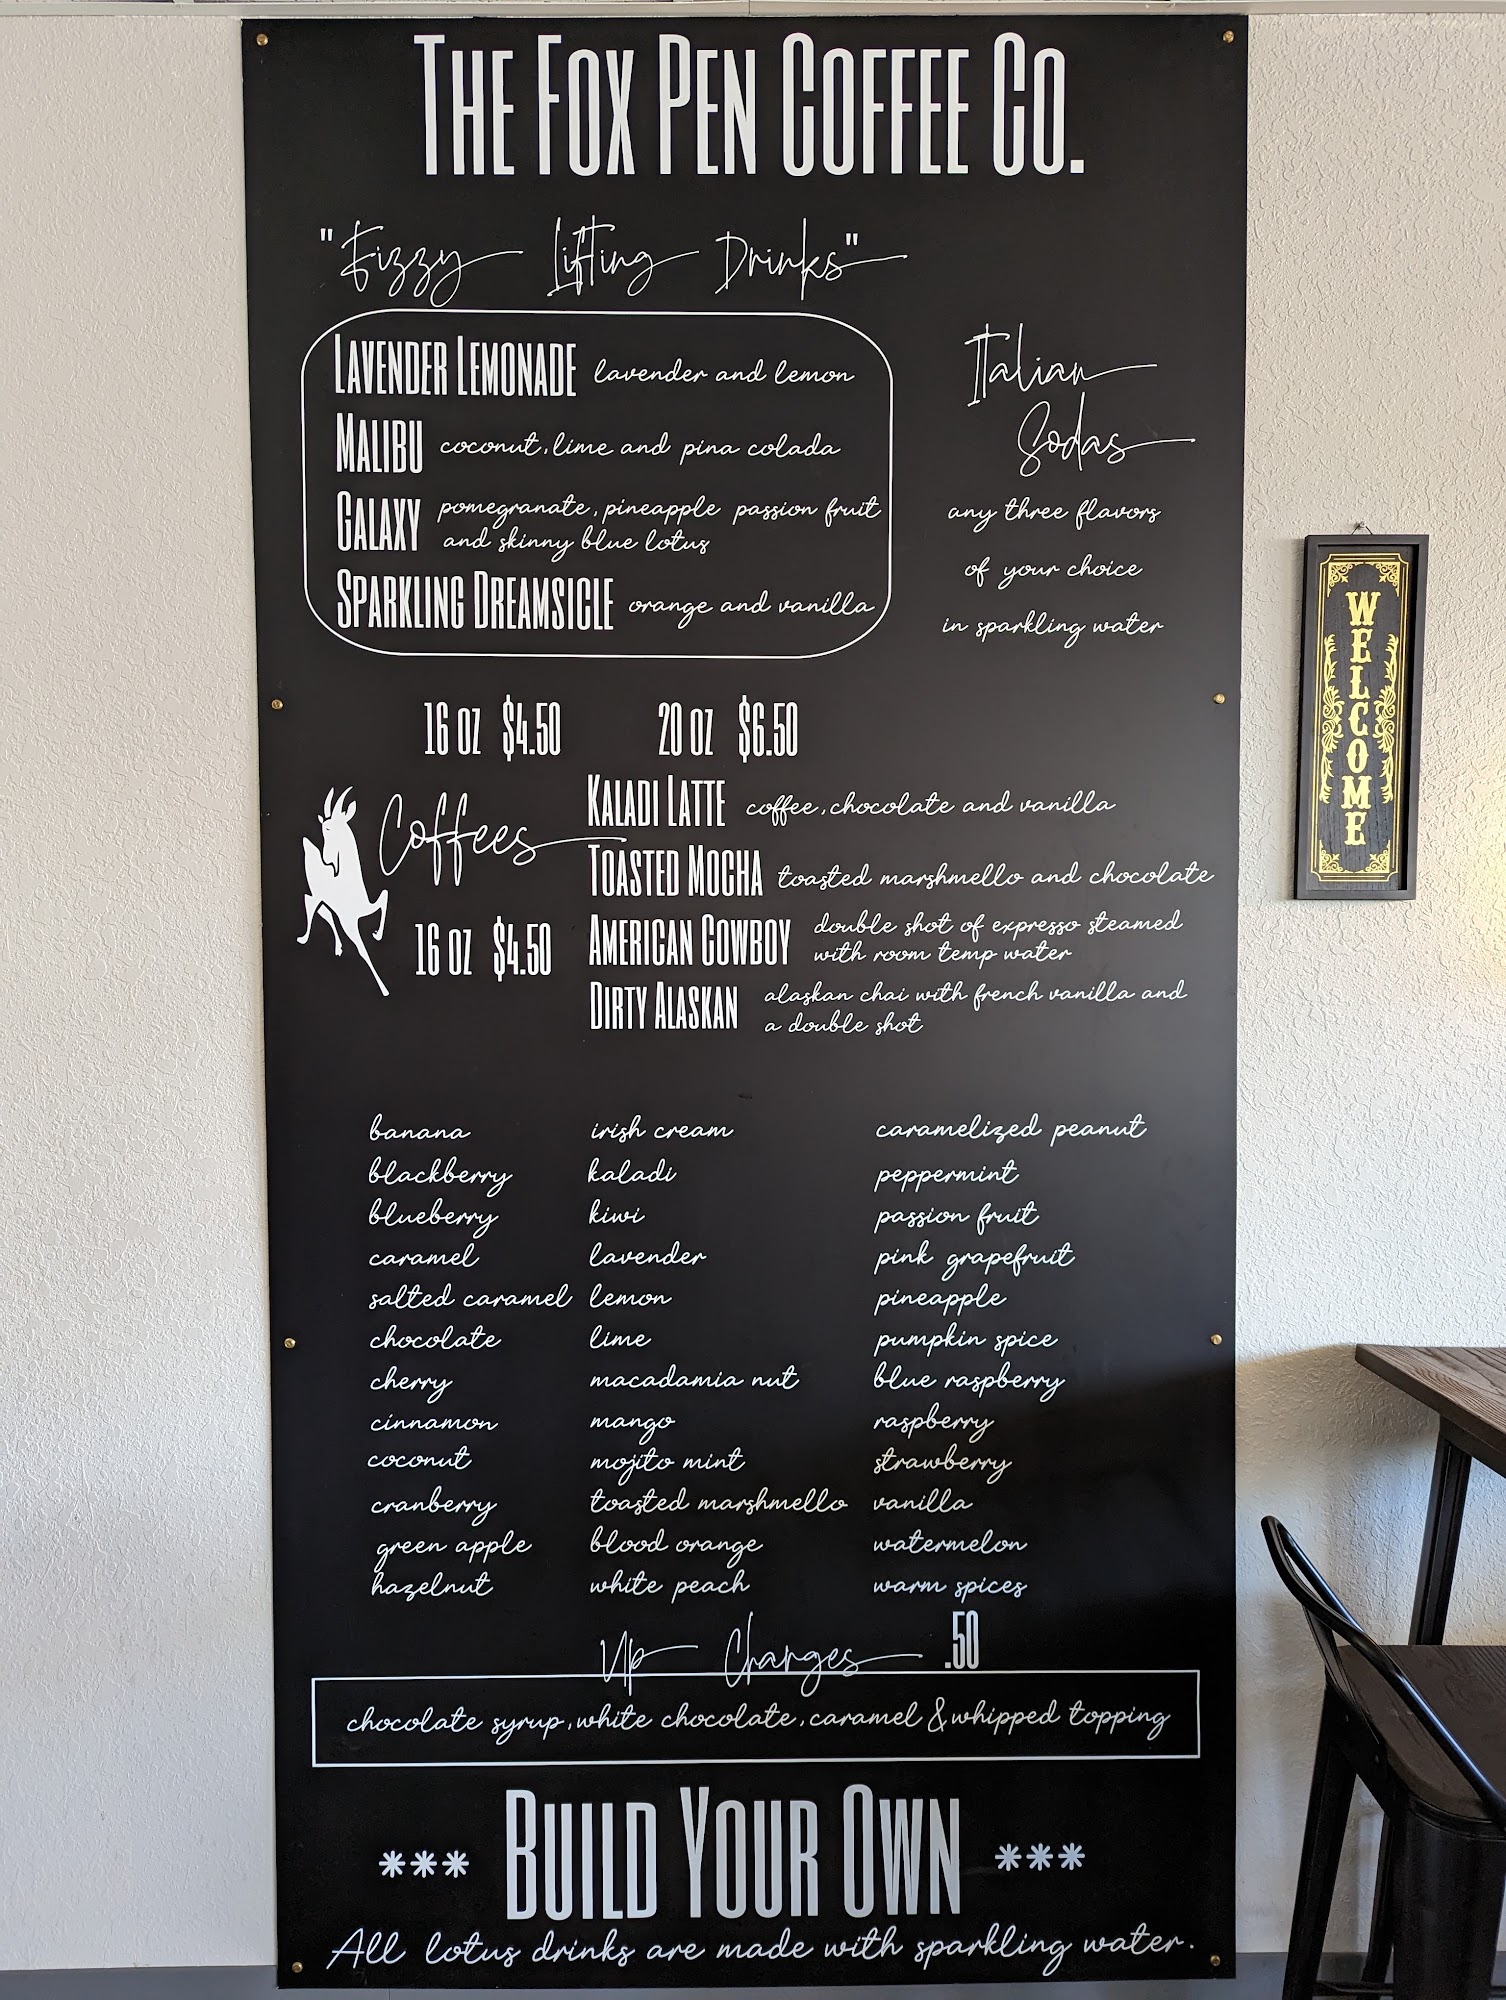 THE FOX PEN COFFEE CO.
"Fizzy Lifting Drinks"
LAVENDER LEMONADE lavender and lemon
MALIBU coconut, lime and pina colada
GALAXY pomegranate, pineapple passion fruit
and skinny blue lotus
SPARKLING DREAMSICLE orange and vanilla
Italian
Sodas
any three flavors
of your choice
in sparkling water
16 OZ $4.50 20 OZ $6.50
Coffees
16 OZ $4.50
KALADI LATTE coffee, chocolate and vanilla
TOASTED MOCHA toasted marshmello and chocolate
AMERICAN COWBOY double shot of expresso steamed
with room temp water
DIRTY ALASKAN alaskan chai with french vanilla and
a double shot
banana irish cream caramelized peanut
blackberry kaladi peppermint
blueberry kiwi passion fruit
caramel lavender pink grapefruit
salted caramel lemon pineapple
chocolate lime pumpkin spice
cherry macadamia nut blue raspberry
cinnamon mango raspberry
coconut mojito mint strawberry
cranberry toasted marshmello vanilla
green apple blood orange watermelon
hazelnut white peach warm spices
Up Charges .50
chocolate syrup, white chocolate, caramel & whipped topping
*** BUILD YOUR OWN ***
All lotus drinks are made with sparkling water.
WELCOME